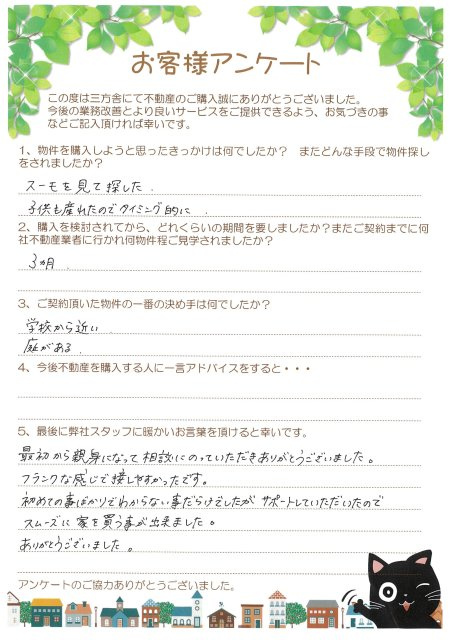 お客様アンケート
この度は三方舎にて不動産のご購入誠にありがとうございました。
今後の業務改善とより良いサービスをご提供できるよう、お気づきの事
などご記入頂ければ幸いです。
1、物件を購入しようと思ったきっかけは何でしたか？　またどんな手段で物件探し
をされましたか？
スーモを見て探した.
子供も産れたのでタイミング的に.
2、購入を検討されてから、どれくらいの期間を要しましたか？またご契約までに何
社不動産業者に行かれ何物件程ご見学されましたか？
3ヵ月.
3、ご契約頂いた物件の一番の決め手は何でしたか？
学校から近い.
庭がある.
4、今後不動産を購入する人に一言アドバイスをすると・・・
5、最後に弊社スタッフに暖かいお言葉を頂けると幸いです。
最初から親身になって相談にのっていただきありがとうございました。
フランクな感じで接しやすかったです。
初めての事ばかりでわからない事だらけでしたが サポートしていただいたので
スムーズに家を買う事が出来ました。
ありがとうございました。
アンケートのご協力ありがとうございました。